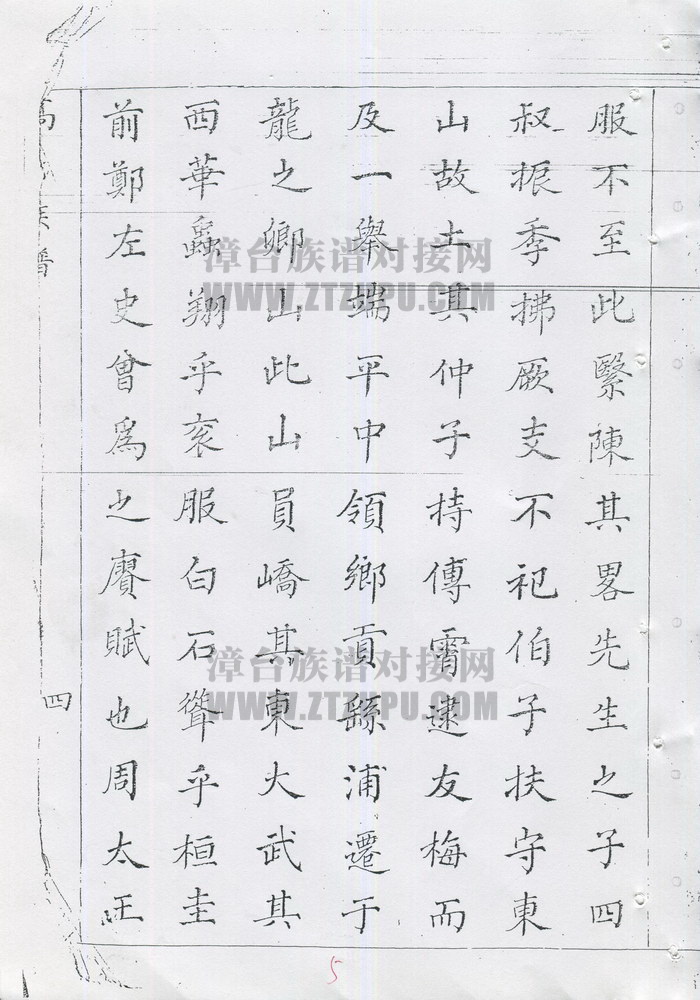 服不至此緊陳其畧先生之子四
叔振季拂厥支不祀伯子扶守東
山故土其仲子持傳霄逮友梅而
及一舉端平中領鄉貢繇浦遷于
龍之卿山此山員嶠其東大武其
西華蟲翔乎衮服白石聳乎桓圭
前鄭左史曾爲之賡賦也周太王
族譜
四
5
漳台族谱对接网
WWW.ZTZUPU.COM
漳台族谱对接网
WWW.ZTZUPU.COM